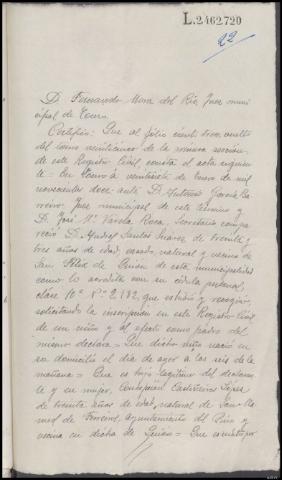 L.2462720
22
D. Fernando Mora del Rio, Juez muni-
cipal de Touro
Certifico: Que al folio ciento trece vuelto
del tomo veinticinco de la misma sección
de este Registro Civil consta el acta siguien-
te = En Touro á veintisiete de Enero de mil
novecientos doce: ante D. Antonio García Ba-
rreiro, Juez municipal de este término y
D. José Mª Varela Roca, Secretario compa-
reció D. Andrés Santos Suarez de treinta y
tres años de edad, casado, natural y vecino de
San Félix de Quión de esta municipalidad
como lo acredita con su cédula personal,
clase 10ª nº 2.182, que exhibió y recogió,
solicitando la inscripción en este Registro Civil
de un niño y al efecto como padre del
mismo declara = Que dicho niño nació en
su domicilio el día de ayer a las seis de la
mañana = Que es hijo legítimo del declaran-
te y su mujer, Concepción Castiñeiras López
de treinta años de edad, natural de San Ma-
med de Ferreiros, ayuntamiento del Pino y
vecina en dicha de Quión = Que es nieto por